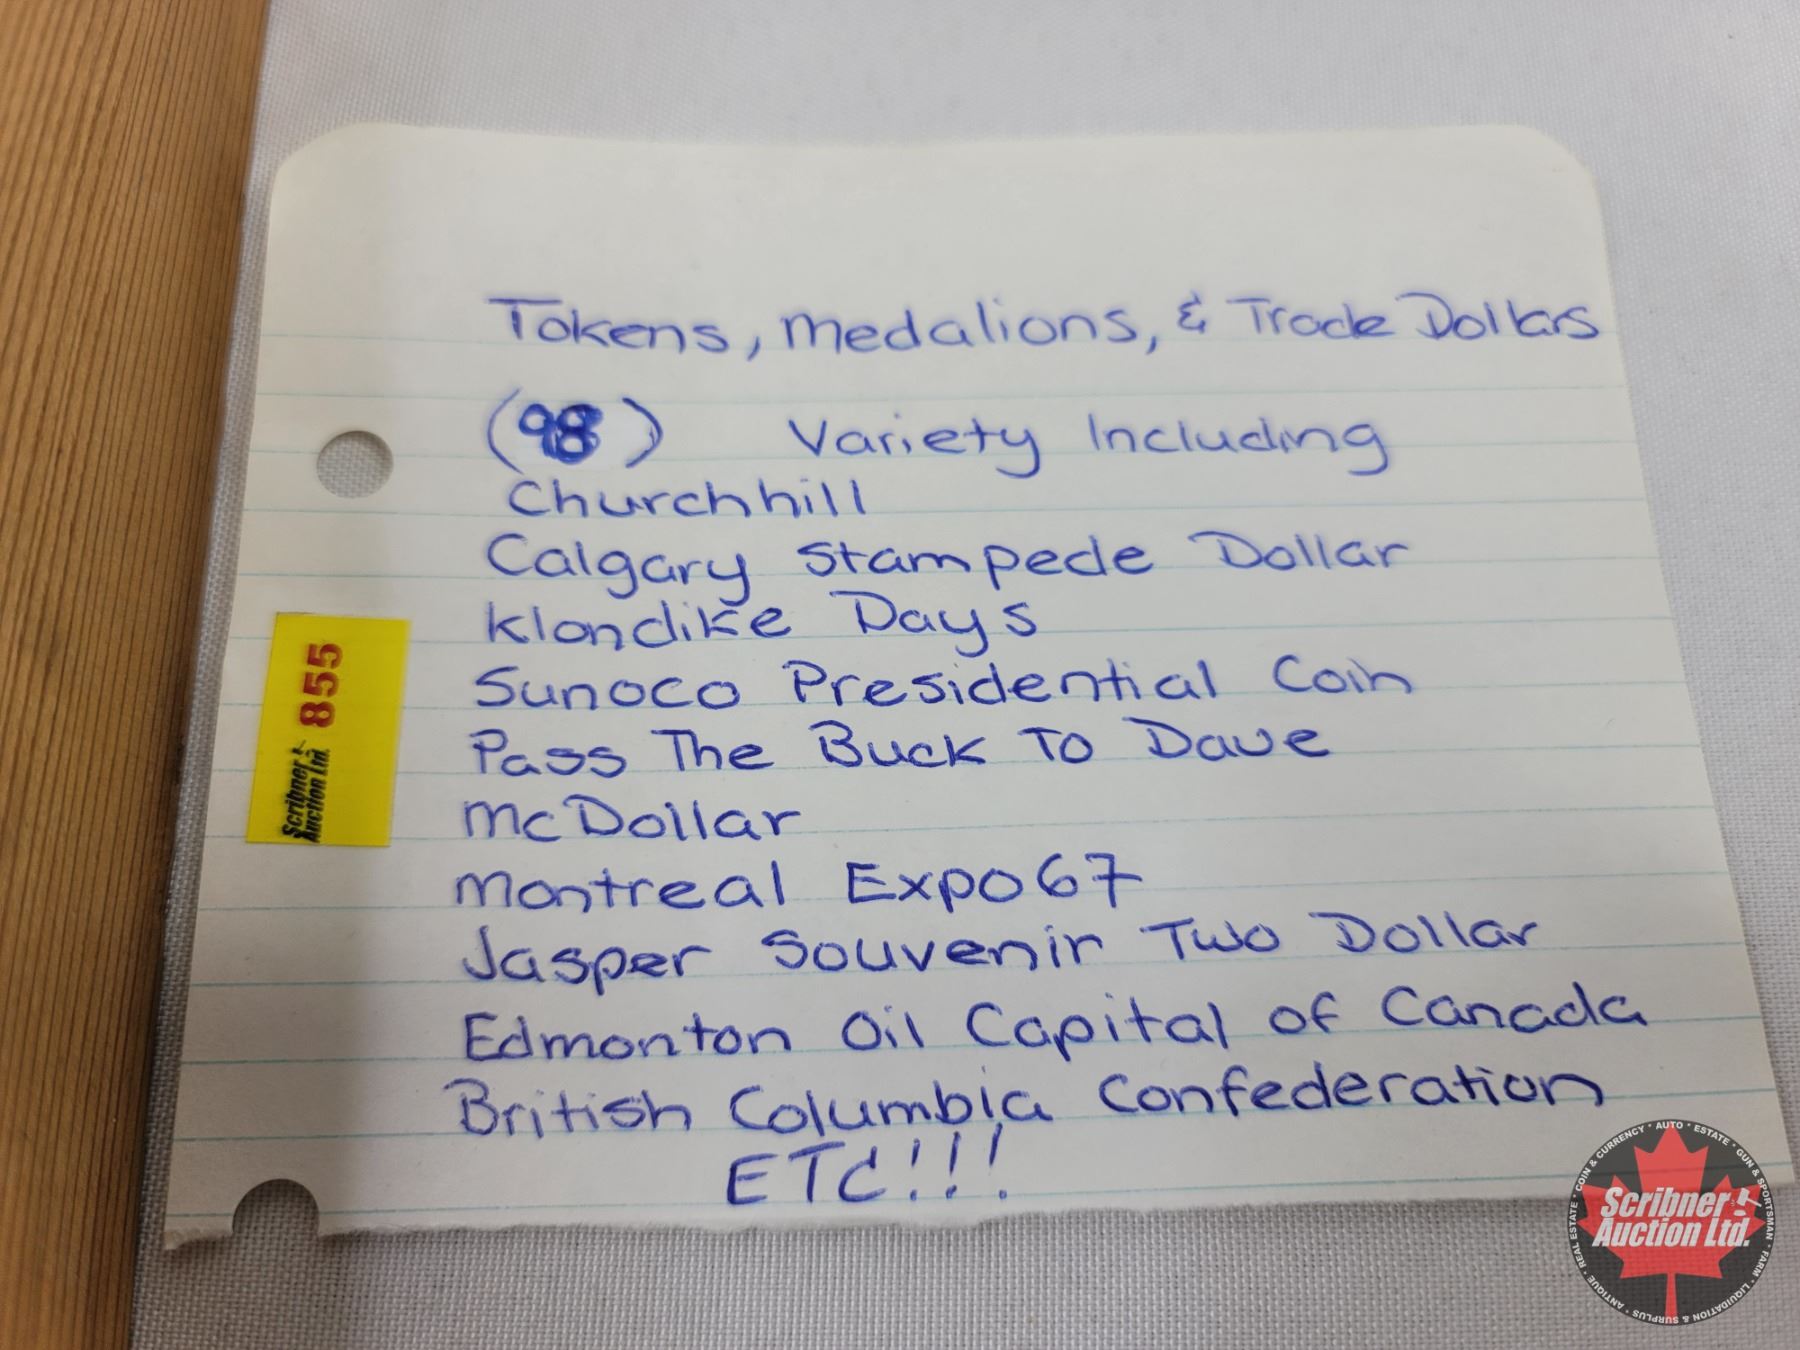 Tokens, medalions, & Trade Dollars
(98) Variety Including
Churchhill
Calgary Stampede Dollar
Klondike Days
Sunoco Presidential Coin
Pass The Buck To Dave
McDollar
Montreal Expo67
Jasper Souvenir Two Dollar
Edmonton Oil Capital of Canada
British Columbia Confederation
ETC!!!
Scribner
Auction Ltd.
855
Scribner
Auction Ltd.
COIN & CURRENCY · AUTO · ESTATE · GUN & SPORTSMAN · FARM · LIQUIDATION & SURPLUS · ANTIQUE · REAL ESTATE